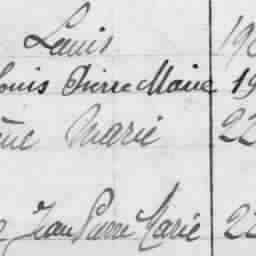 Louis 190
Louis Pierre Marie 19
Marie 22
Jean Pierre Marie 22